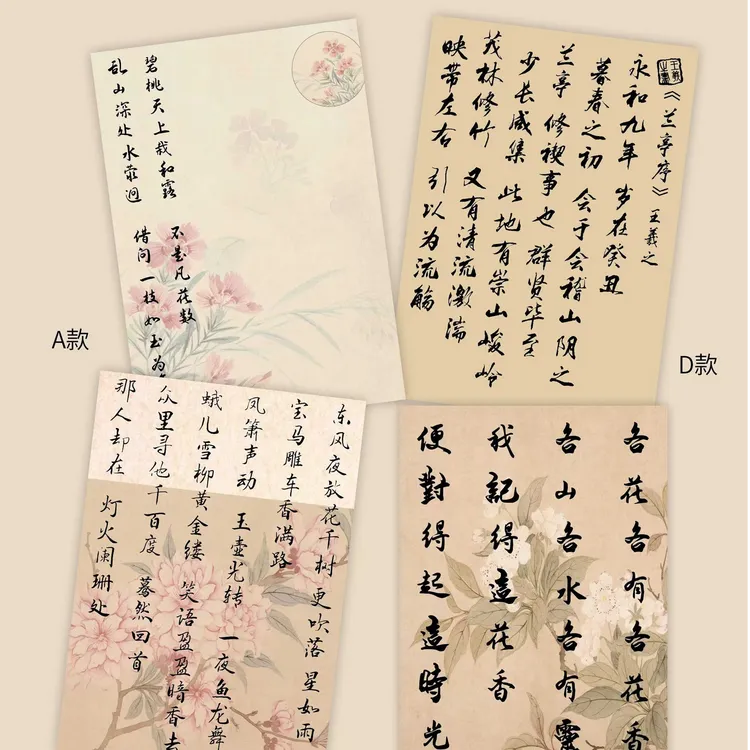 碧桃天上栽和露
不是凡花数
乱山深处水萦洄
借问一枝如玉为
A款
《兰亭序》王羲之
永和九年 岁在癸丑
暮春之初 会于会稽山阴之
兰亭 修禊事也 群贤毕至
少长咸集 此地有崇山峻岭
茂林修竹 又有清流激湍
映带左右 引以为流觞
D款
东风夜放花千树 更吹落 星如雨
宝马雕车香满路
凤箫声动 玉壶光转 一夜鱼龙舞
蛾儿雪柳黄金缕 笑语盈盈暗香去
众里寻他千百度 蓦然回首
那人却在 灯火阑珊处
各花各有各花香
各山各水各有靈
我記得這花香
便對得起這時光